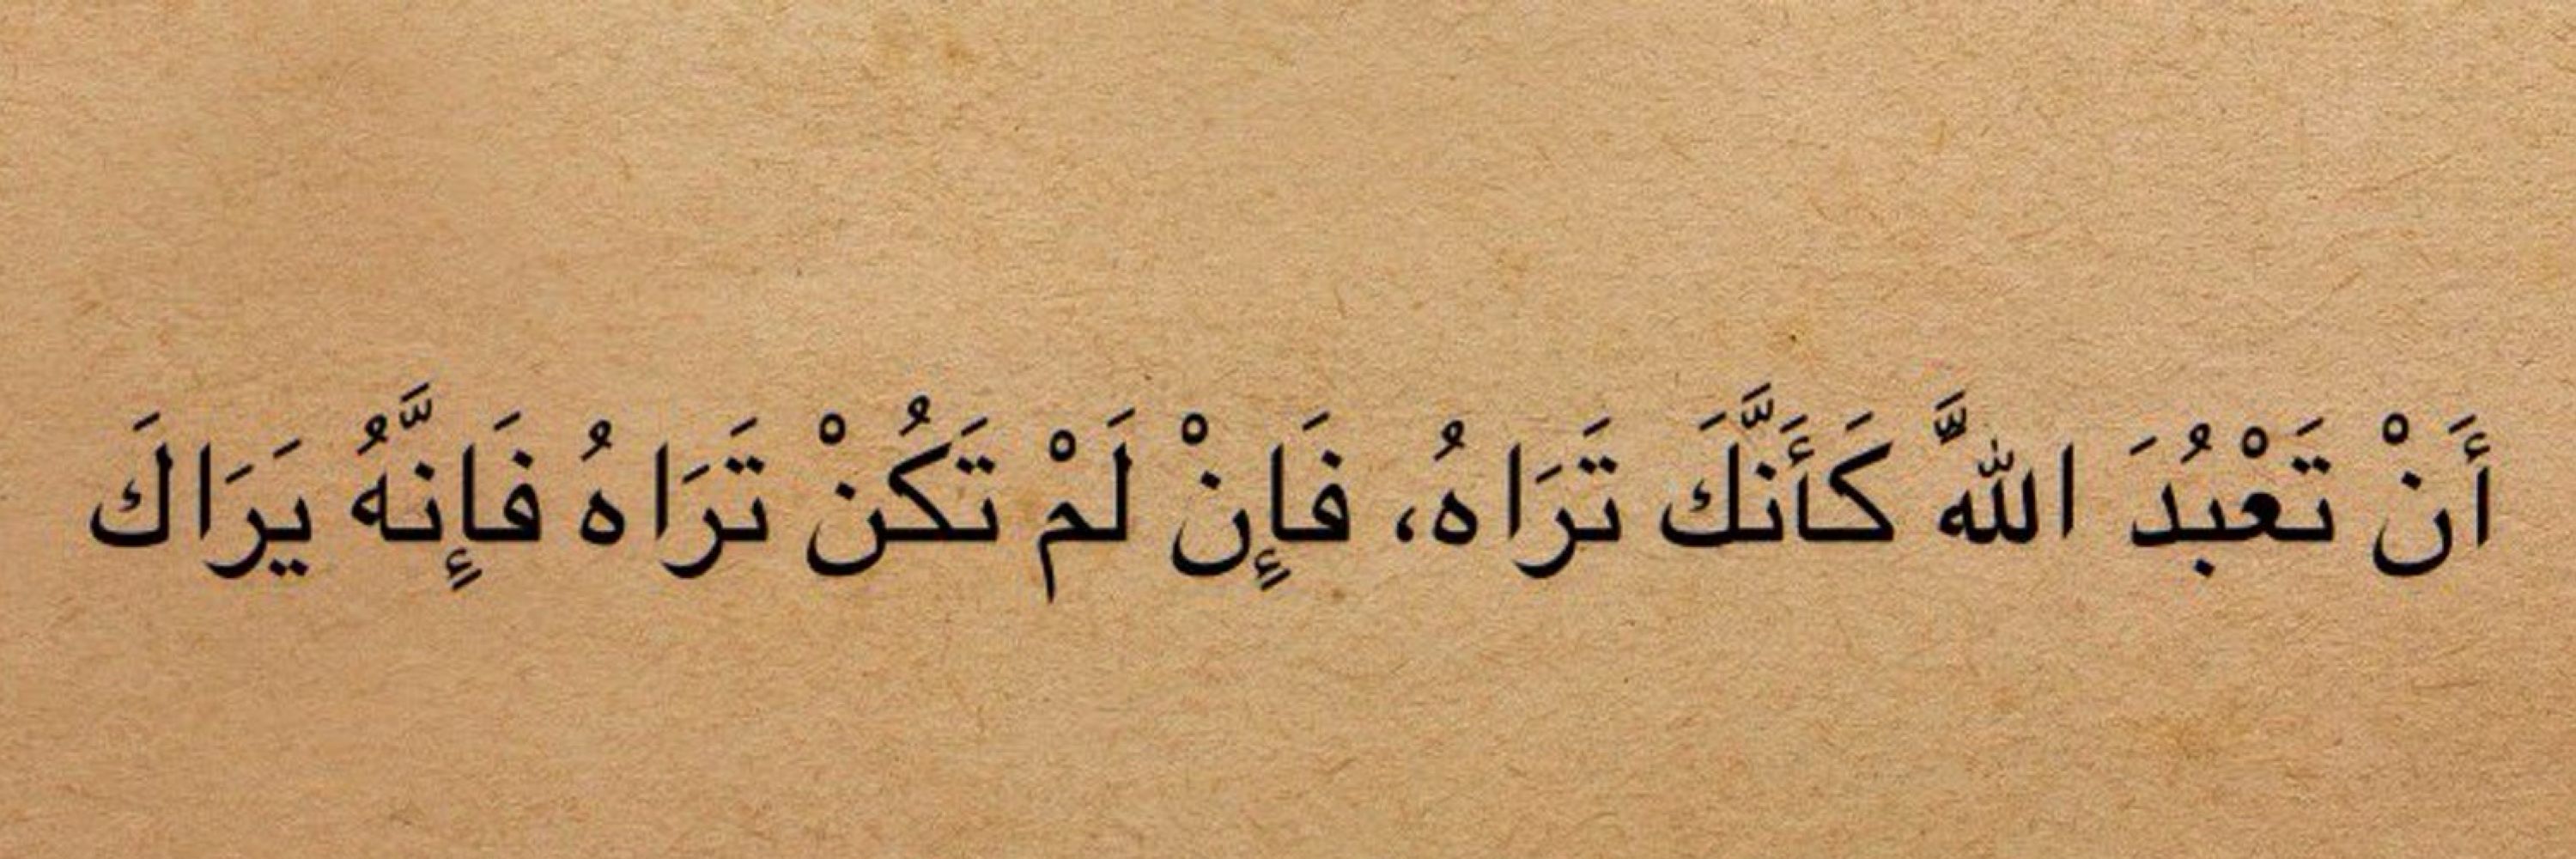 أَنْ تَعْبُدَ اللهَّ كَأَنَّكَ تَرَاهُ، فَإِنْ لَمْ تَكُنْ تَرَاهُ فَإِنَّهُ يَرَاكَ